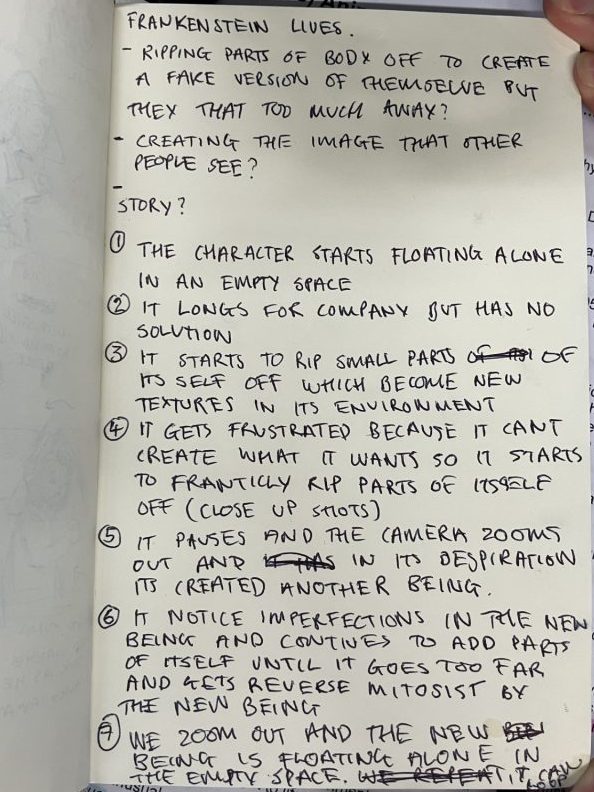 FRANKENSTEIN LIVES.
- RIPPING PARTS OF BODY OFF TO CREATE
A FAKE VERSION OF THEMSELVE BUT
THEY THAT TOO MUCH AWAY?
- CREATING THE IMAGE THAT OTHER
PEOPLE SEE?
-
STORY?
① THE CHARACTER STARTS FLOATING ALONE
IN AN EMPTY SPACE
② IT LONGS FOR COMPANY BUT HAS NO
SOLUTION
③ IT STARTS TO RIP SMALL PARTS OF
ITS SELF OFF WHICH BECOME NEW
TEXTURES IN ITS ENVIRONMENT
④ IT GETS FRUSTRATED BECAUSE IT CANT
CREATE WHAT IT WANTS SO IT STARTS
TO FRANTICLY RIP PARTS OF ITSSELF
OFF (CLOSE UP SHOTS)
⑤ IT PAUSES AND THE CAMERA ZOOMS
OUT AND IN ITS DESPIRATION
ITS CREATED ANOTHER BEING.
⑥ IT NOTICE IMPERFECTIONS IN THE NEW
BEING AND CONTINES TO ADD PARTS
OF ITSELF UNTIL IT GOES TOO FAR
AND GETS REVERSE MITOSIST BY
THE NEW BEING
⑦ WE ZOOM OUT AND THE NEW
BEING IS FLOATING ALONE IN
THE EMPTY SPACE. IT CAN
LOOP